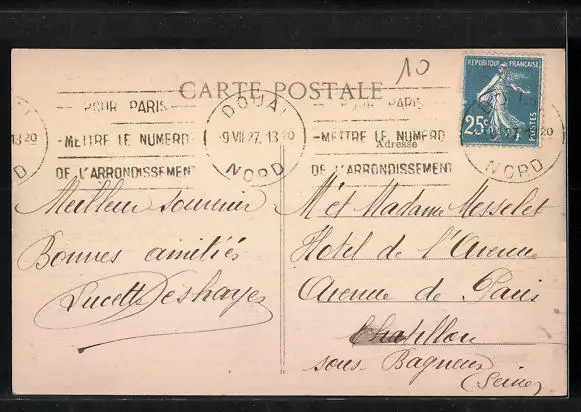 10
CARTE POSTALE
RÉPUBLIQUE FRANÇAISE
25c
POSTES
13 20
D
POUR PARIS
-METTRE LE NUMERO
DE L'ARRONDISSEMENT
DOUAI
-9 VII 27. 13 20
NORD
POUR PARIS
-METTRE LE NUMERO
DE L'ARRONDISSEMENT
NORD
Adresse
Meilleur souvenir
Bonnes amitiés
Lucette Deshayes
Mr et Madame Messelet
Hotel de l'Avenue
Avenue de Paris
Chatillon
sous-Bagneux
(Seine)